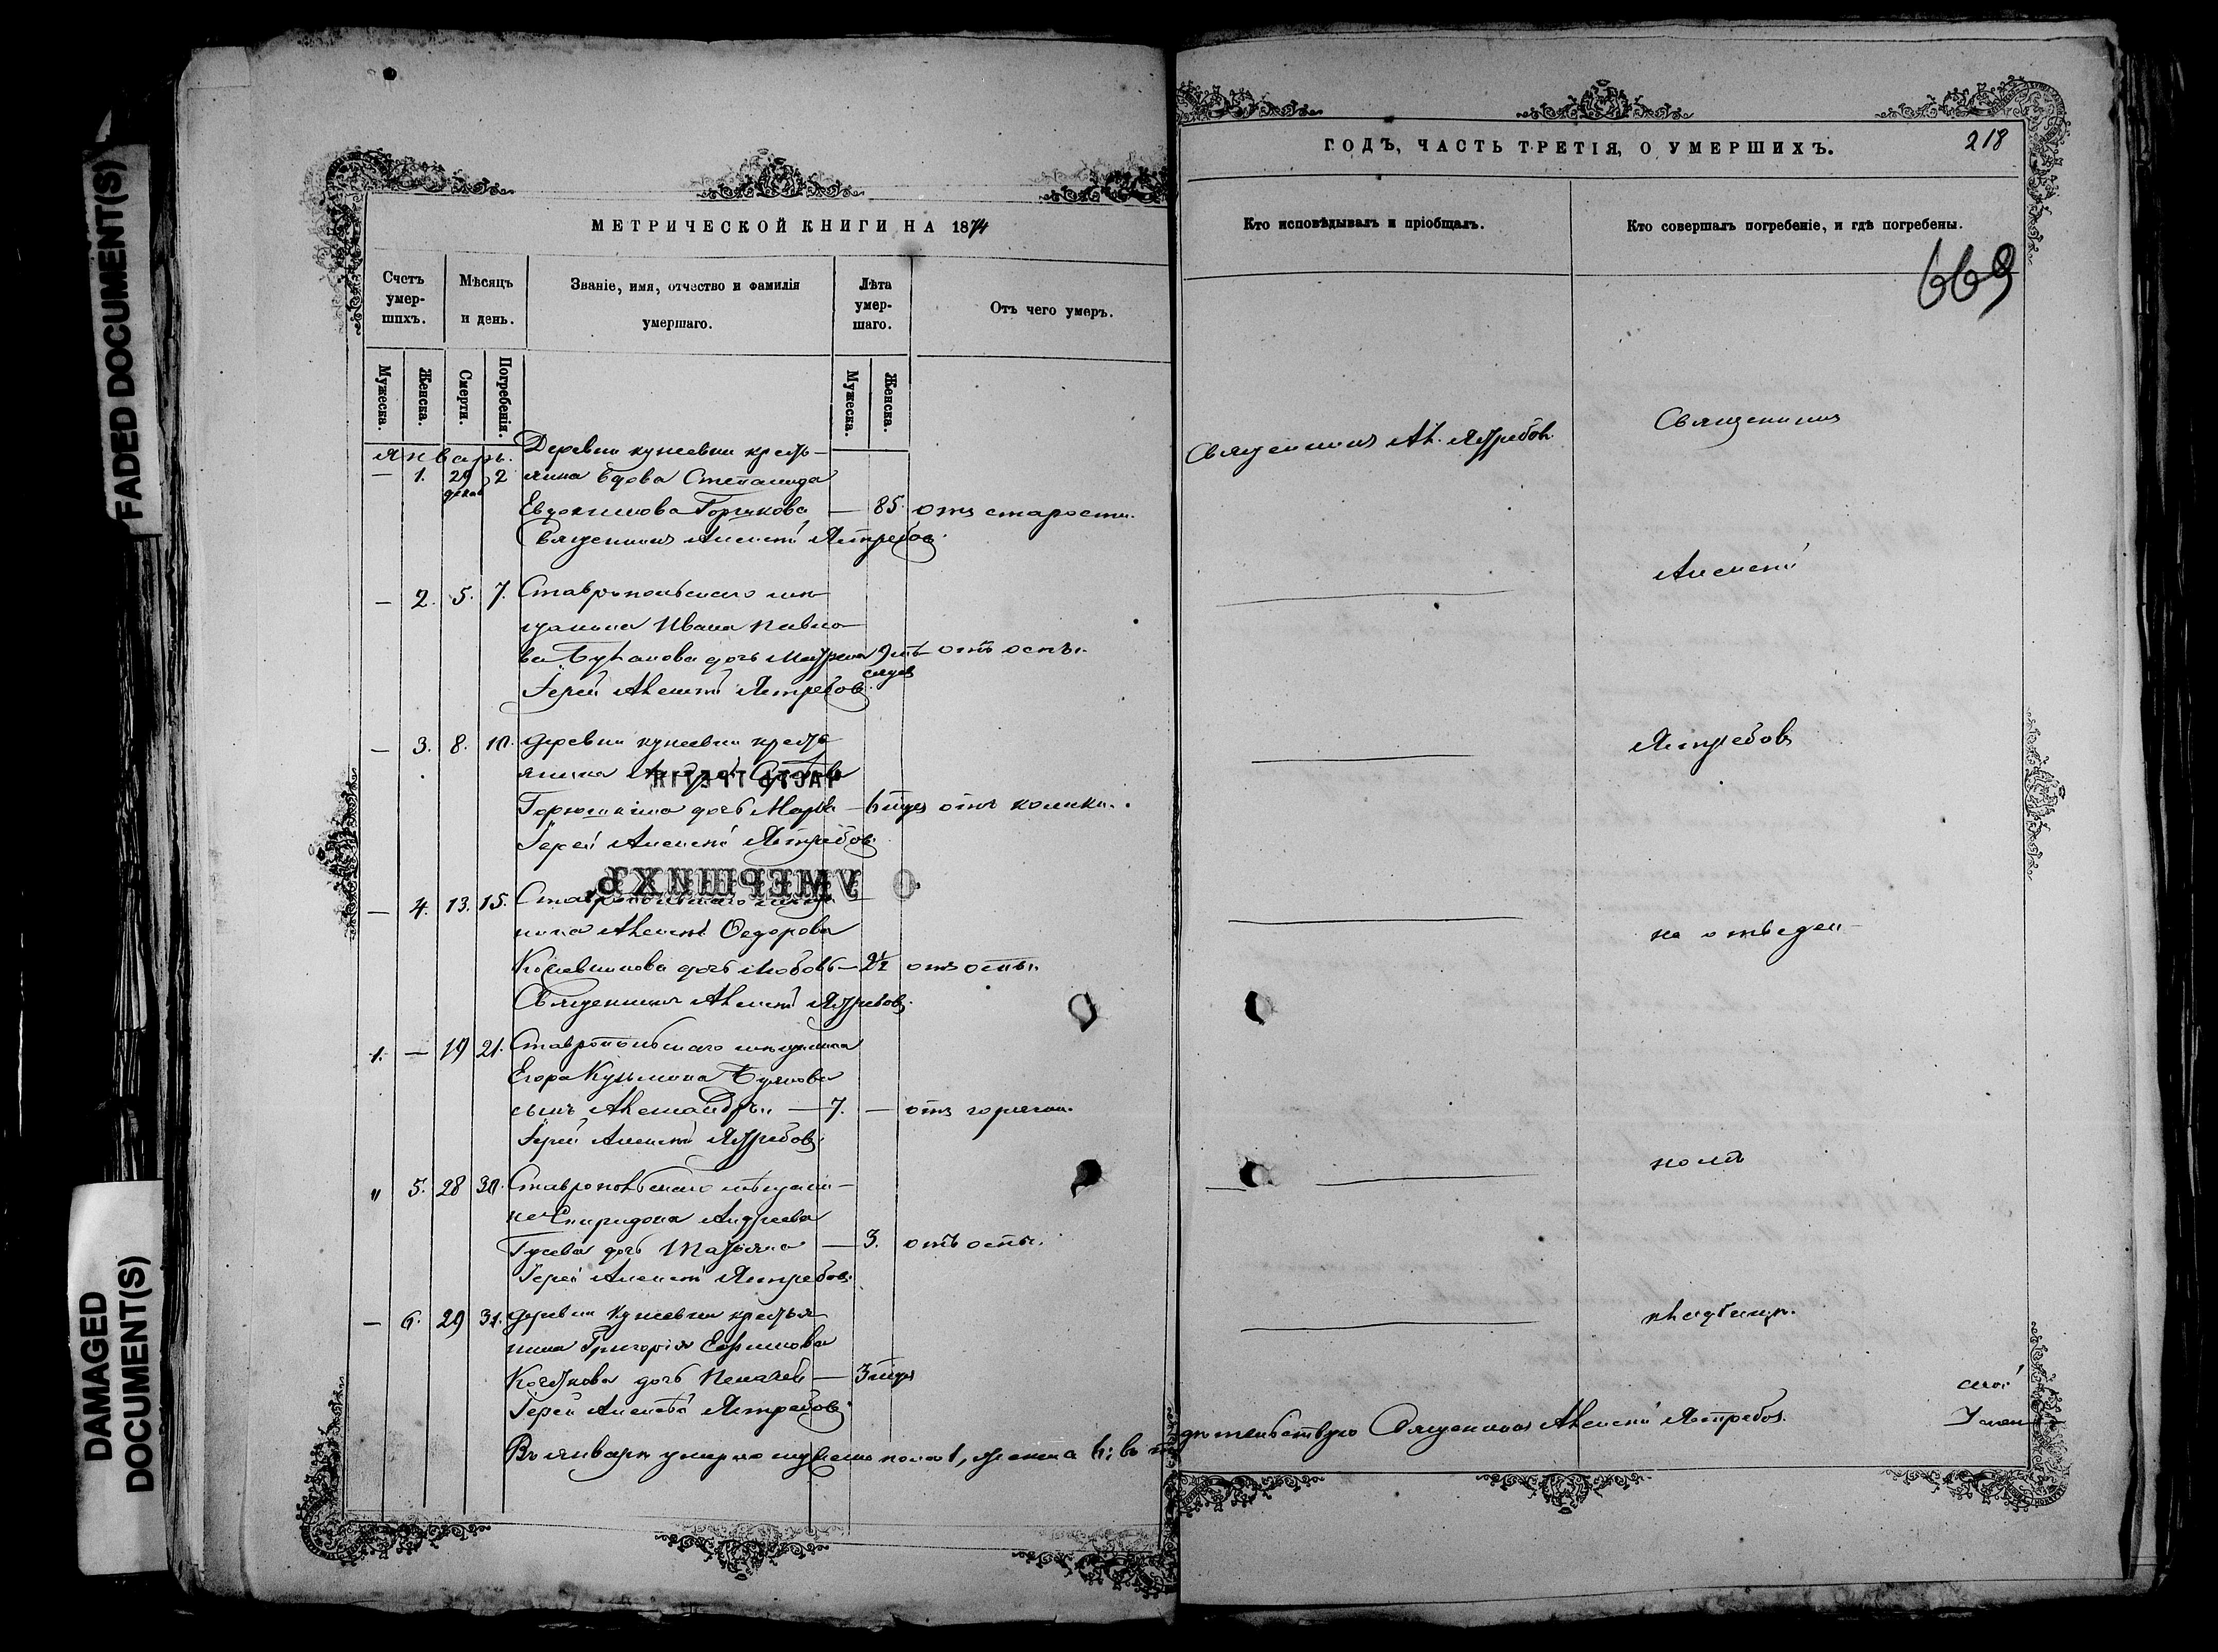 FADED DOCUMENT(S)
DAMAGED
DOCUMENT(S)
МЕТРИЧЕСКОЙ КНИГИ НА 1874
Счетъ
умер-
шихъ.
Мѣсяцъ
и день.
Званіе, имя, отчество и фамилія
умершаго.
Лѣта
умер-
шаго.
Отъ чего умеръ.
Мужеска.
Женска.
Смерти.
Погребенія.
Мужеска.
Женска.
Январь. Деревни Кунеевки кресть-
— 1. 29 дека 2 янина вдова Степанида
Евдокимова Горшкова — 85. отъ старости.
Священникъ Алексѣй Ястребовъ.
— 2. 5. 7. Ставропольскаго мѣ-
щанина Ивана Павло-
ва дочь отъ оспы.
Іерей Алексѣй Ястребовъ.
— 3. 8. 10. деревни Кунеевки кресть-
янина
ЧАСТЬ ТРЕТІЯ
Горюшкина дочь — 6 отъ колики.
Іерей Алексѣй Ястребовъ.
УМЕРШИХЪ.
— 4. 13. 15. Ставропольскаго мѣща-
нина Алексѣя Ѳедорова
дочь Любовь — 2½ отъ оспы.
Священникъ Алексѣй Ястребовъ.
1. — 19 21. Ставропольскаго мѣщанина
Егора Кузьмина
сынъ Александръ — 7. — отъ горячки.
Іерей Алексѣй Ястребовъ.
" 5. 28 30. Ставропольскаго мѣщани-
на Спиридона Андреева
Гусева дочь Татьяна — 3. отъ оспы.
Іерей Алексѣй Ястребовъ.
— 6. 29 31. деревни Кунеевки крестья-
нина Григорія Ефимова
дочь — 3
Іерей Алексѣй Ястребовъ.
Въ январѣ умерло мужеска пола 1, женска 6; въ
ГОДЪ, ЧАСТЬ ТРЕТІЯ, О УМЕРШИХЪ.
218
Кто исповѣдывалъ и пріобщалъ.
Кто совершалъ погребеніе, и гдѣ погребены.
669
Священникъ Ал. Ястребовъ.
Священникъ
Алексѣй
Ястребовъ
на отведен-
номъ
кладбищѣ.
Священникъ Алексѣй Ястребовъ.